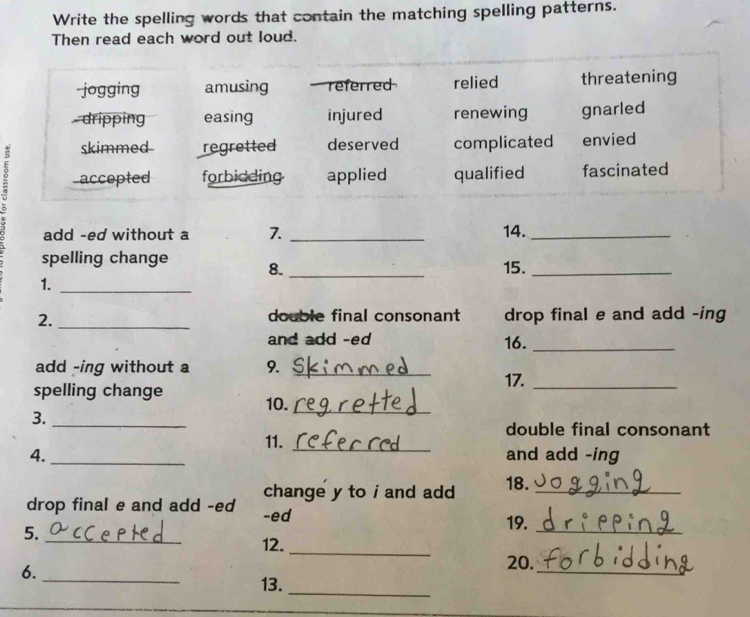 Write the spelling words that contain the matching spelling patterns.
Then read each word out loud.
jogging amusing referred relied threatening
dripping easing injured renewing gnarled
skimmed regretted deserved complicated envied
accepted forbidding applied qualified fascinated
add -ed without a
spelling change
1.
2.
add -ing without a
spelling change
3.
4.
drop final e and add -ed
5. accepted
6.
7.
8.
double final consonant
and add -ed
9. Skimmed
10. regretted
11. referred
change y to i and add
-ed
12.
13.
14.
15.
drop final e and add -ing
16.
17.
double final consonant
and add -ing
18. jogging
19. dripping
20. forbidding
reproduce for classroom use.